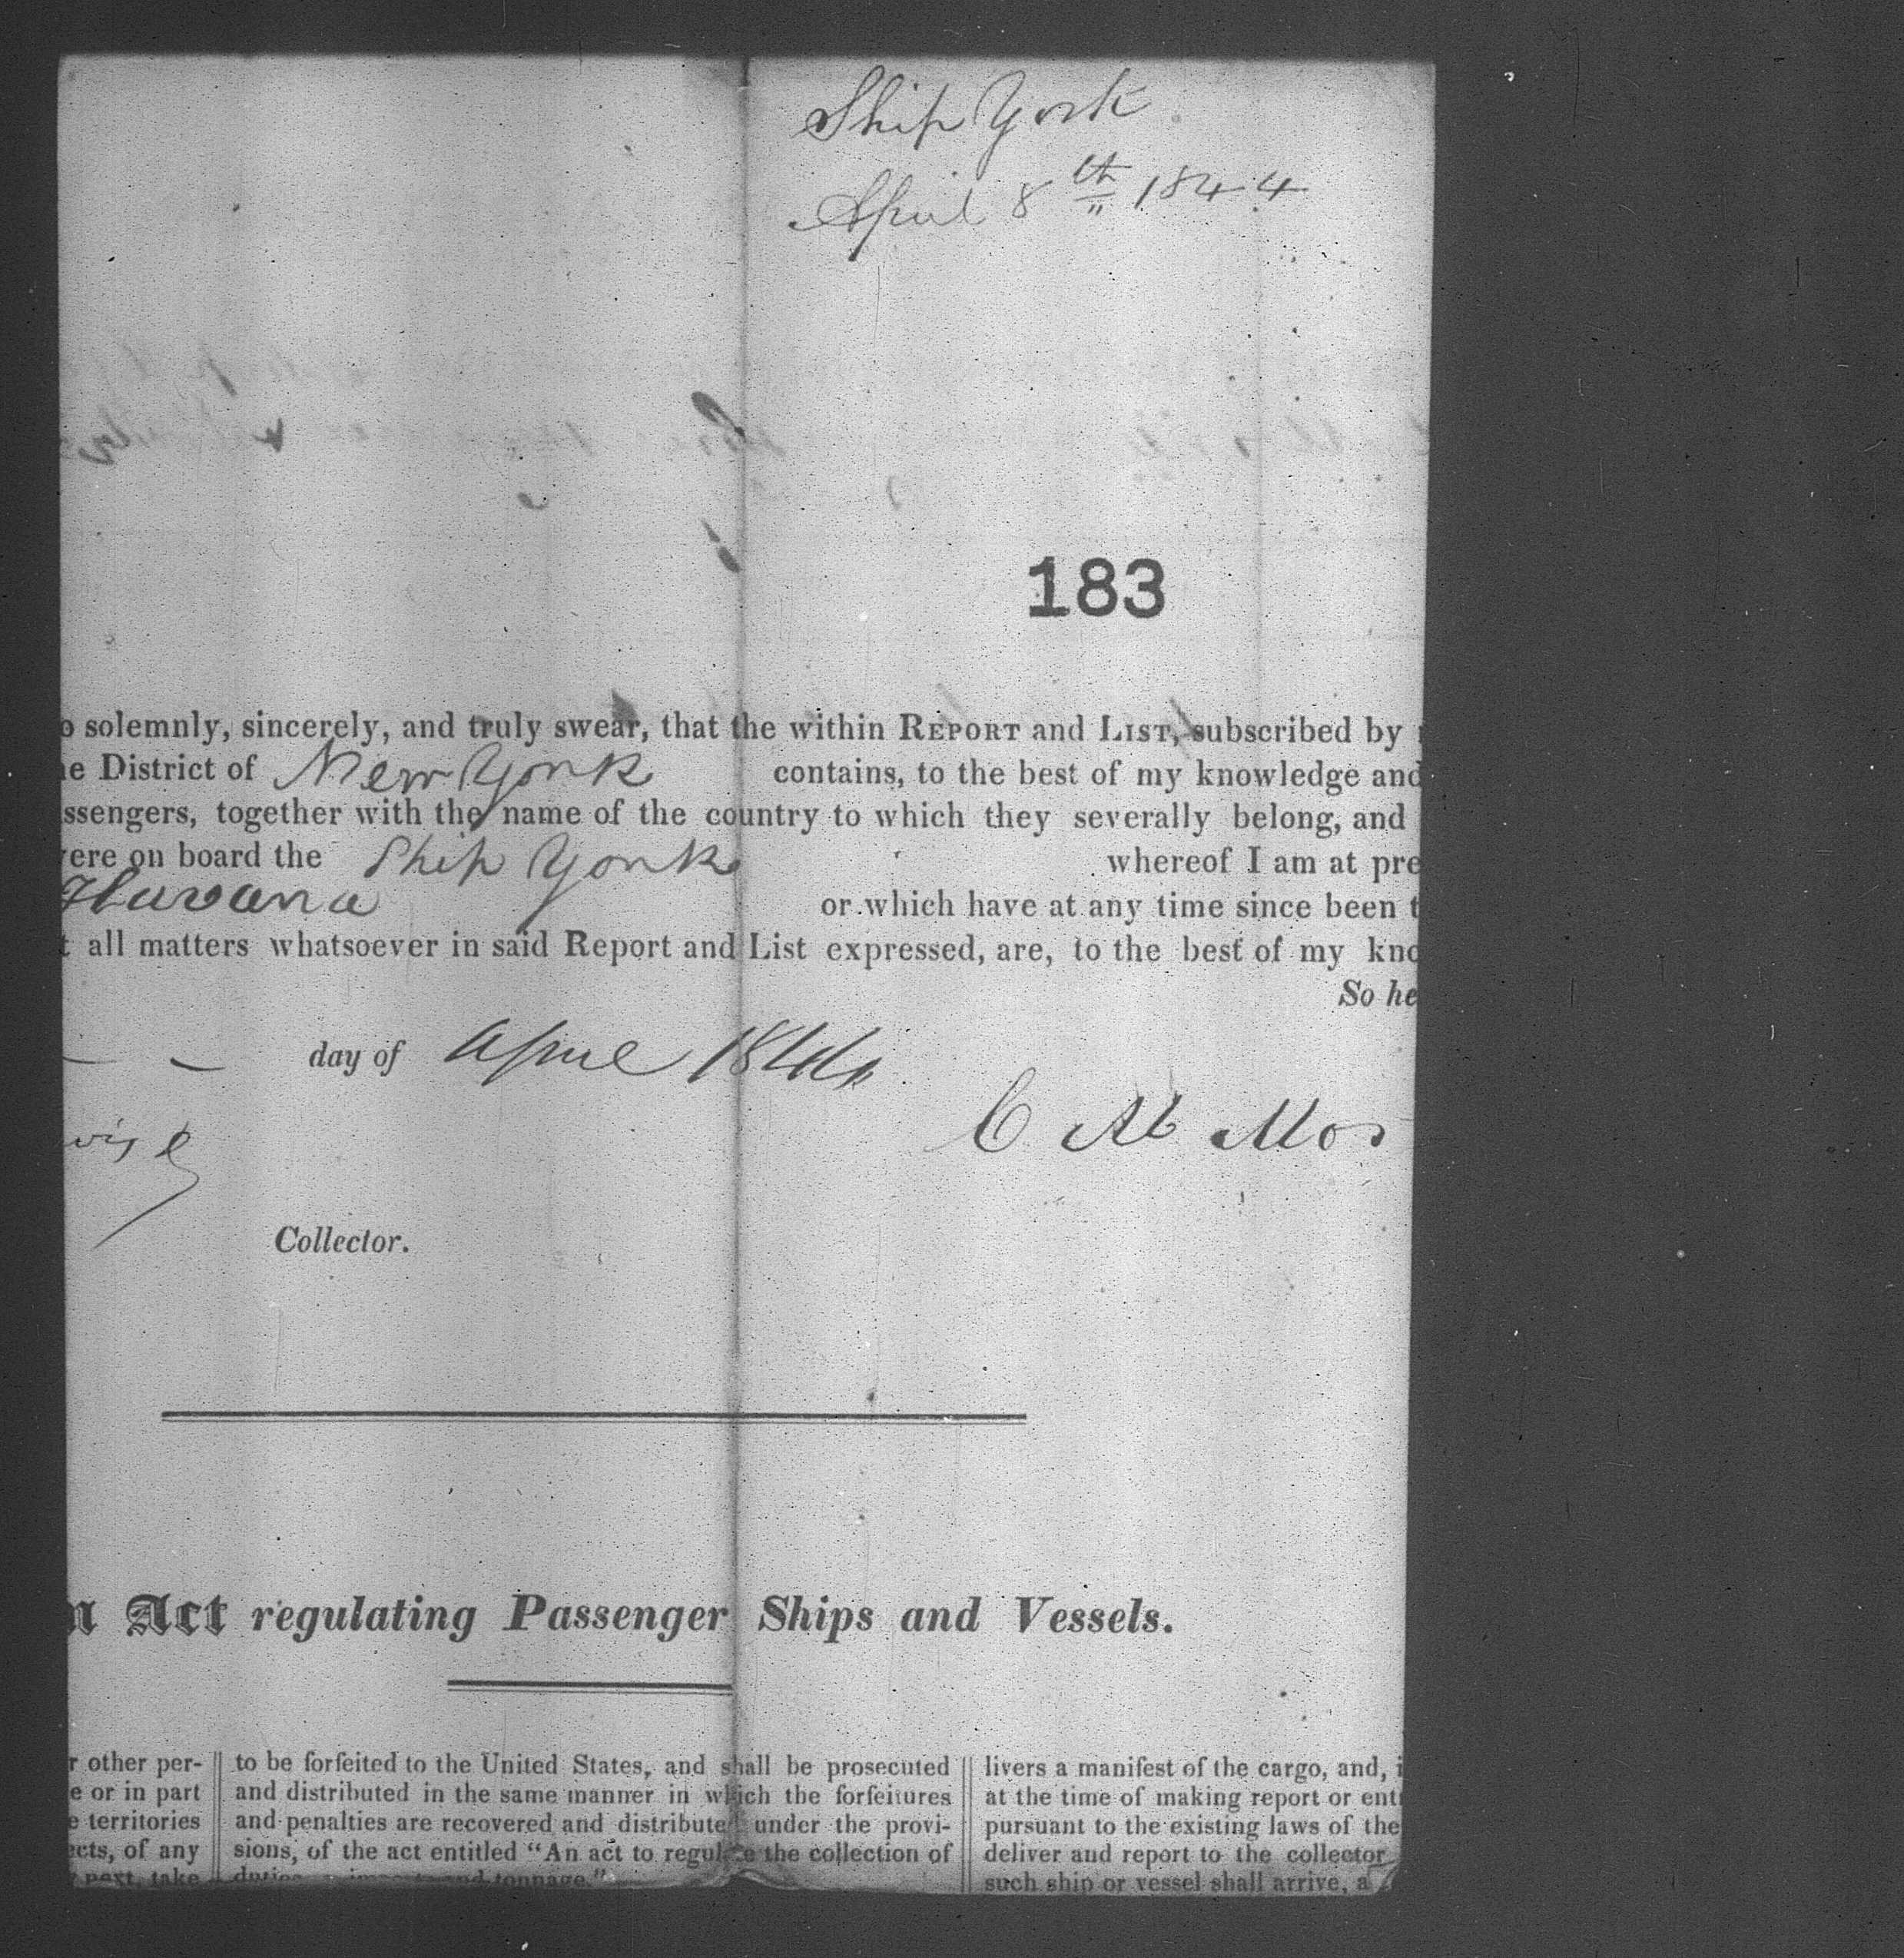 Ship York
April 8th 1844
183
o solemnly, sincerely, and truly swear, that the within REPORT and LIST, subscribed by
e District of New York contains, to the best of my knowledge and
ssengers, together with the name of the country to which they severally belong, and
ere on board the Ship York whereof I am at pre
Havana or which have at any time since been t
t all matters whatsoever in said Report and List expressed, are, to the best of my kno
So he
day of April 1844
C M Mor
Collector.
n Act regulating Passenger Ships and Vessels.
r other per-
e or in part
e territories
ects, of any
next, take
to be forfeited to the United States, and shall be prosecuted
and distributed in the same manner in which the forfeitures
and penalties are recovered and distributed under the provi-
sions, of the act entitled "An act to regulate the collection of
duties imports and tonnage."
livers a manifest of the cargo, and, i
at the time of making report or ent
pursuant to the existing laws of the
deliver and report to the collector
such ship or vessel shall arrive, a